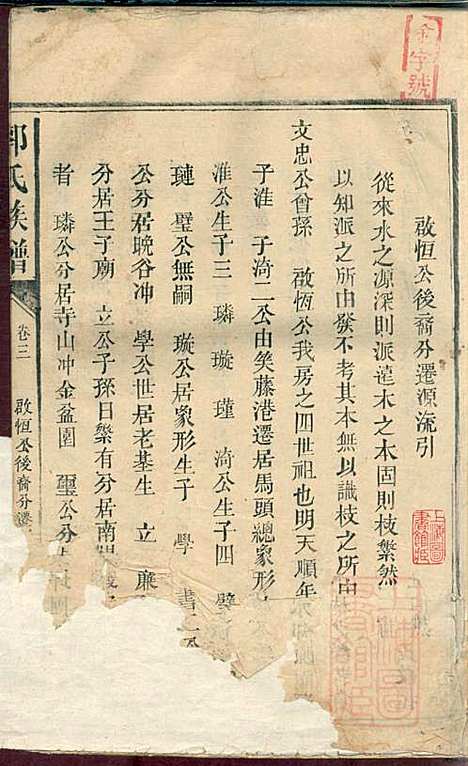 金字號
啟恒公後裔分遷源流引
從來水之源深則派遠木之本固則枝繁然
以知派之所由發不考其本無以識枝之所由
文忠公曾孫 啟恆公我房之四世祖也明天順年
子淮 子漪二公由笑藤港遷居馬頭總象形
淮公生子三 璘 璇 瑾 漪公生子四 璧
璉 璧公無嗣 璇公居象形生子 學
公分居晚谷冲 學公世居老基生 立 廉
分居王了廟 立公子孫日繁有分居南
者 璘公分居寺山冲金盆園 璽公分
氏族譜
卷三
啟恒公後裔分遷